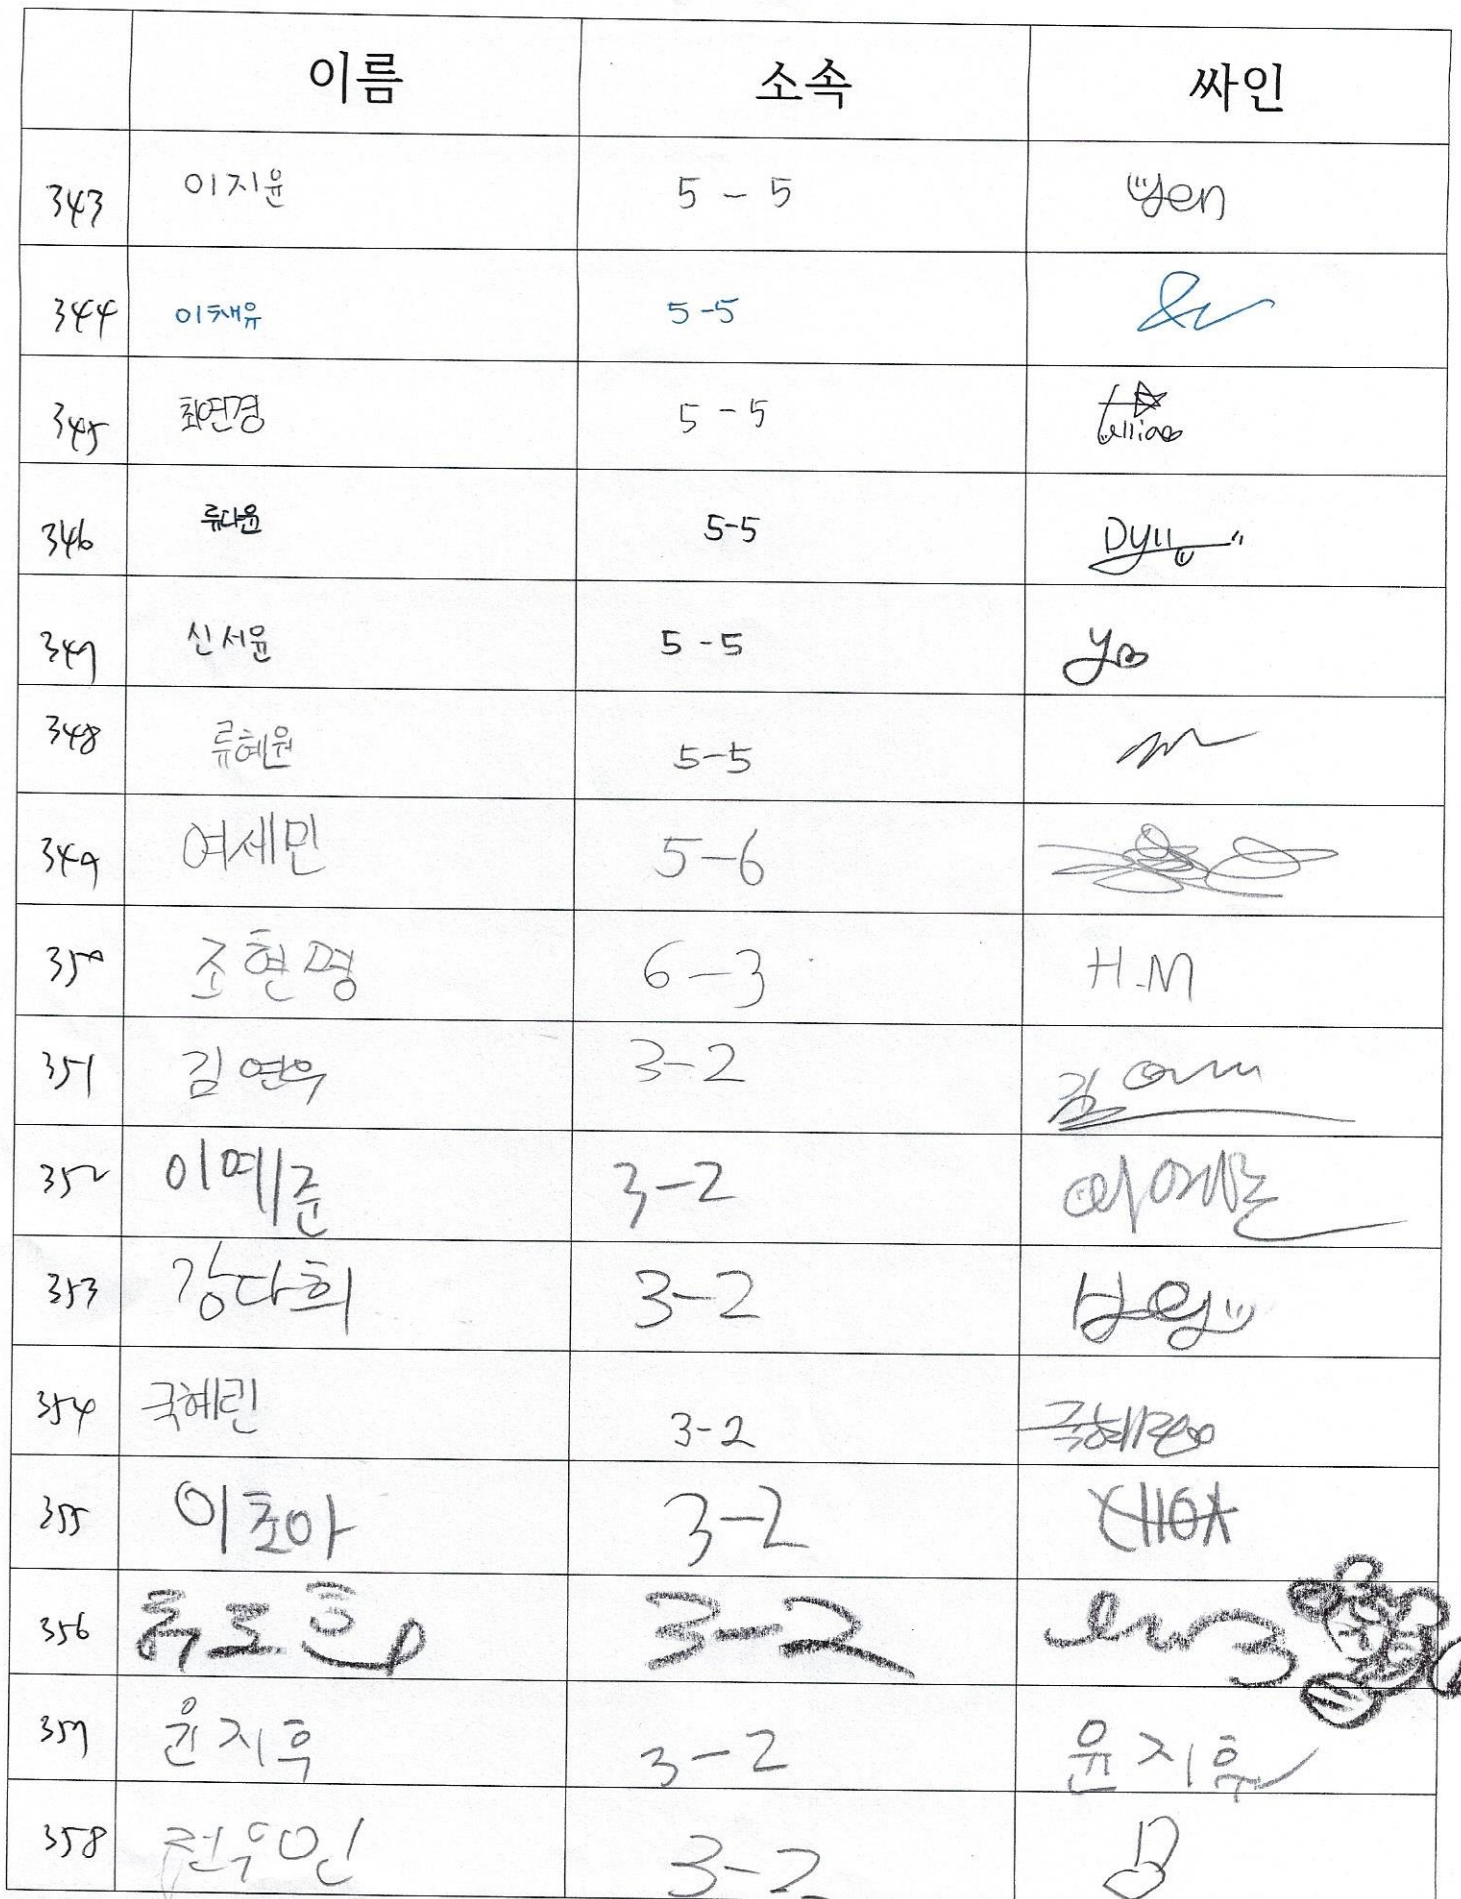 이름 소속 싸인
343 이지윤 5-5 yen
344 이채유 5-5
345 최연경 5-5
346 류다윤 5-5
347 신서윤 5-5
348 류혜원 5-5
349 여세민 5-6
350 조현명 6-3 H.M
351 김연우 3-2
352 이예준 3-2 이예준
353 강다희 3-2
354 국혜린 3-2 국혜린
355 이초아 3-2
356 3-2
357 윤지후 3-2 윤지후
358 3-2